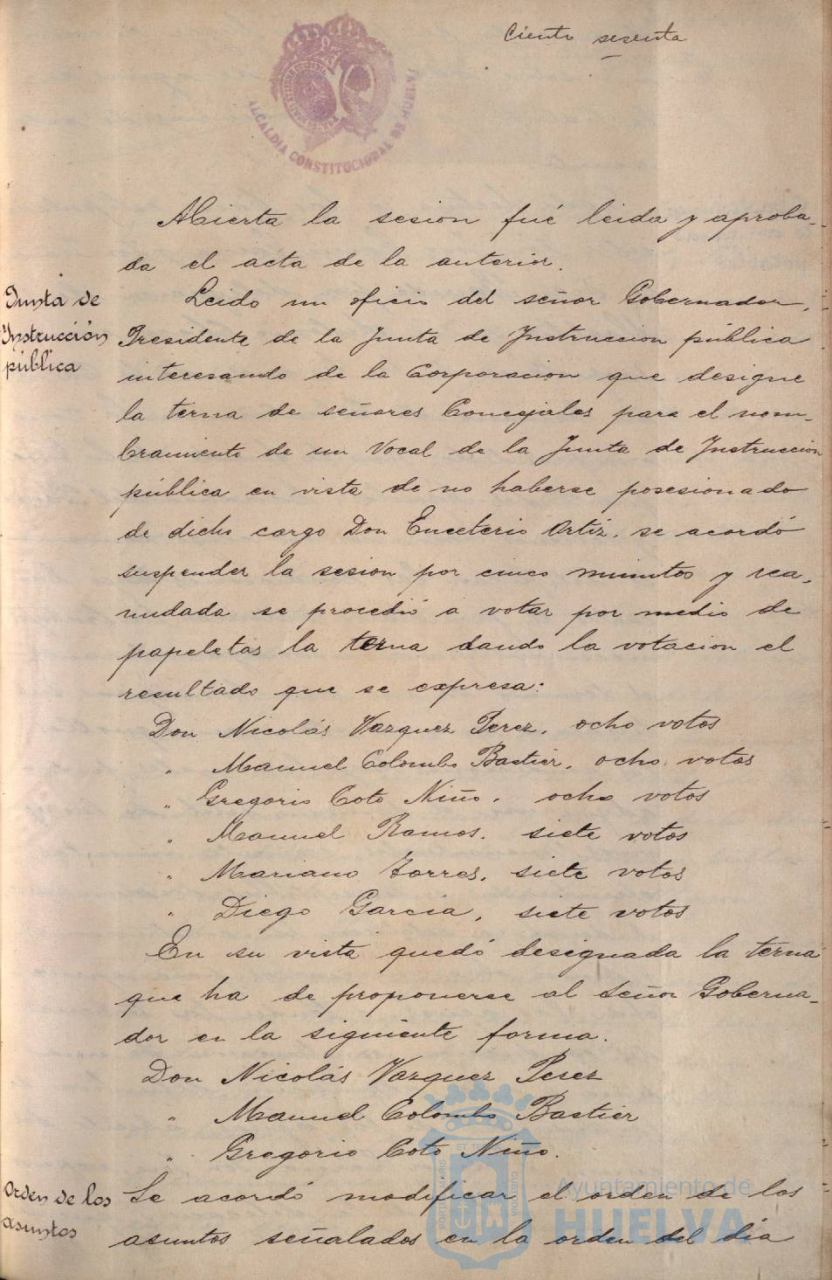 Ciento sesenta
ALCALDIA CONSTITUCIONAL DE HUELVA
Abierta la sesion fué leida y aproba-
da el acta de la anterior.
Junta de
Instrucción
pública
Leido un oficio del señor Gobernador,
Presidente de la Junta de Instruccion pública
interesando de la Corporacion que designe
la terna de señores Concejales para el nom-
bramiento de un Vocal de la Junta de Instruccion
pública en vista de no haberse posesionado
de dicho cargo Don Emeterio Ortiz, se acordó
suspender la sesion por cinco minutos y rea-
nudada se procedió a votar por medio de
papeletas la terna dando la votacion el
resultado que se expresa:
Don Nicolás Vazquez Perez, ocho votos
" Manuel Colombo Bastier, ocho votos
" Gregorio Coto Niño, ocho votos
" Manuel Ramos, siete votos
" Mariano Torres, siete votos
" Diego Garcia, siete votos
En su vista quedó designada la terna
que ha de proponerse al señor Goberna-
dor en la siguiente forma.
Don Nicolás Vazquez Perez
" Manuel Colombo Bastier
" Gregorio Coto Niño.
Orden de los
asuntos
Se acordó modificar el orden de los
asuntos señalados en la orden del dia
Ayuntamiento de
HUELVA